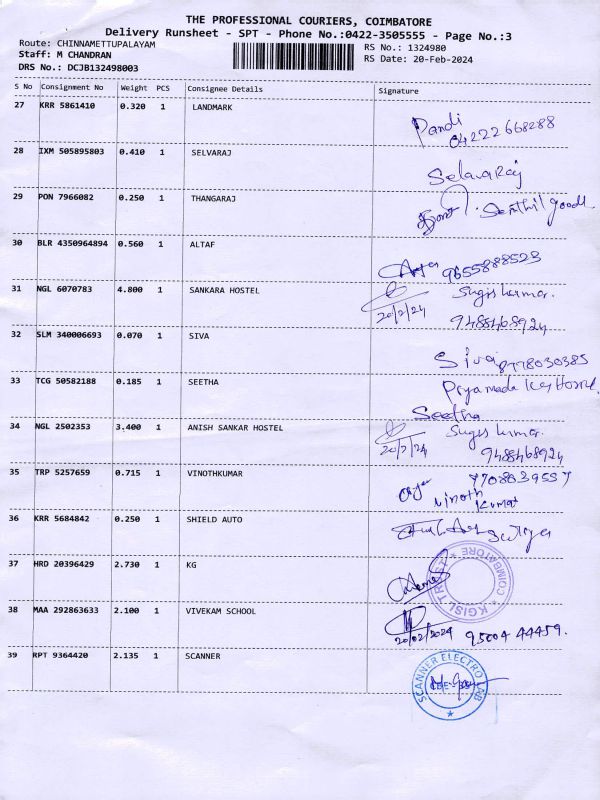 THE PROFESSIONAL COURIERS, COIMBATORE
Delivery Runsheet - SPT - Phone No.:0422-3505555 - Page No.:3
Route: CHINNAMETTUPALAYAM
RS No.: 1324980
Staff: M CHANDRAN
RS Date: 20-Feb-2024
DRS No.: DCJB132498003
S No Consignment No Weight PCS Consignee Details Signature
27 KRR 5861410 0.320 1 LANDMARK
Pandi
04222668288
28 IXM 505895803 0.410 1 SELVARAJ
Selavaraj
29 PON 7966082 0.250 1 THANGARAJ
Senthil goods
30 BLR 4350964894 0.560 1 ALTAF
9655888523
31 NGL 6070783 4.800 1 SANKARA HOSTEL
Sugis kumar.
20/2/24
9488468924
32 SLM 340006693 0.070 1 SIVA
Siva 8778030385
33 TCG 50582188 0.185 1 SEETHA
Seetha
34 NGL 2502353 3.400 1 ANISH SANKAR HOSTEL
Sugis kumar.
20/2/24
9488468924
35 TRP 5257659 0.715 1 VINOTHKUMAR
7708039557
Vinoth
Kumar
36 KRR 5684842 0.250 1 SHIELD AUTO
Surya
37 HRD 20396429 2.730 1 KG
KGISL TRUST * COIMBATORE *
38 MAA 292863633 2.100 1 VIVEKAM SCHOOL
20/02/2024 95004 44459.
39 RPT 9364420 2.135 1 SCANNER
SCANNER ELECTRO LAB